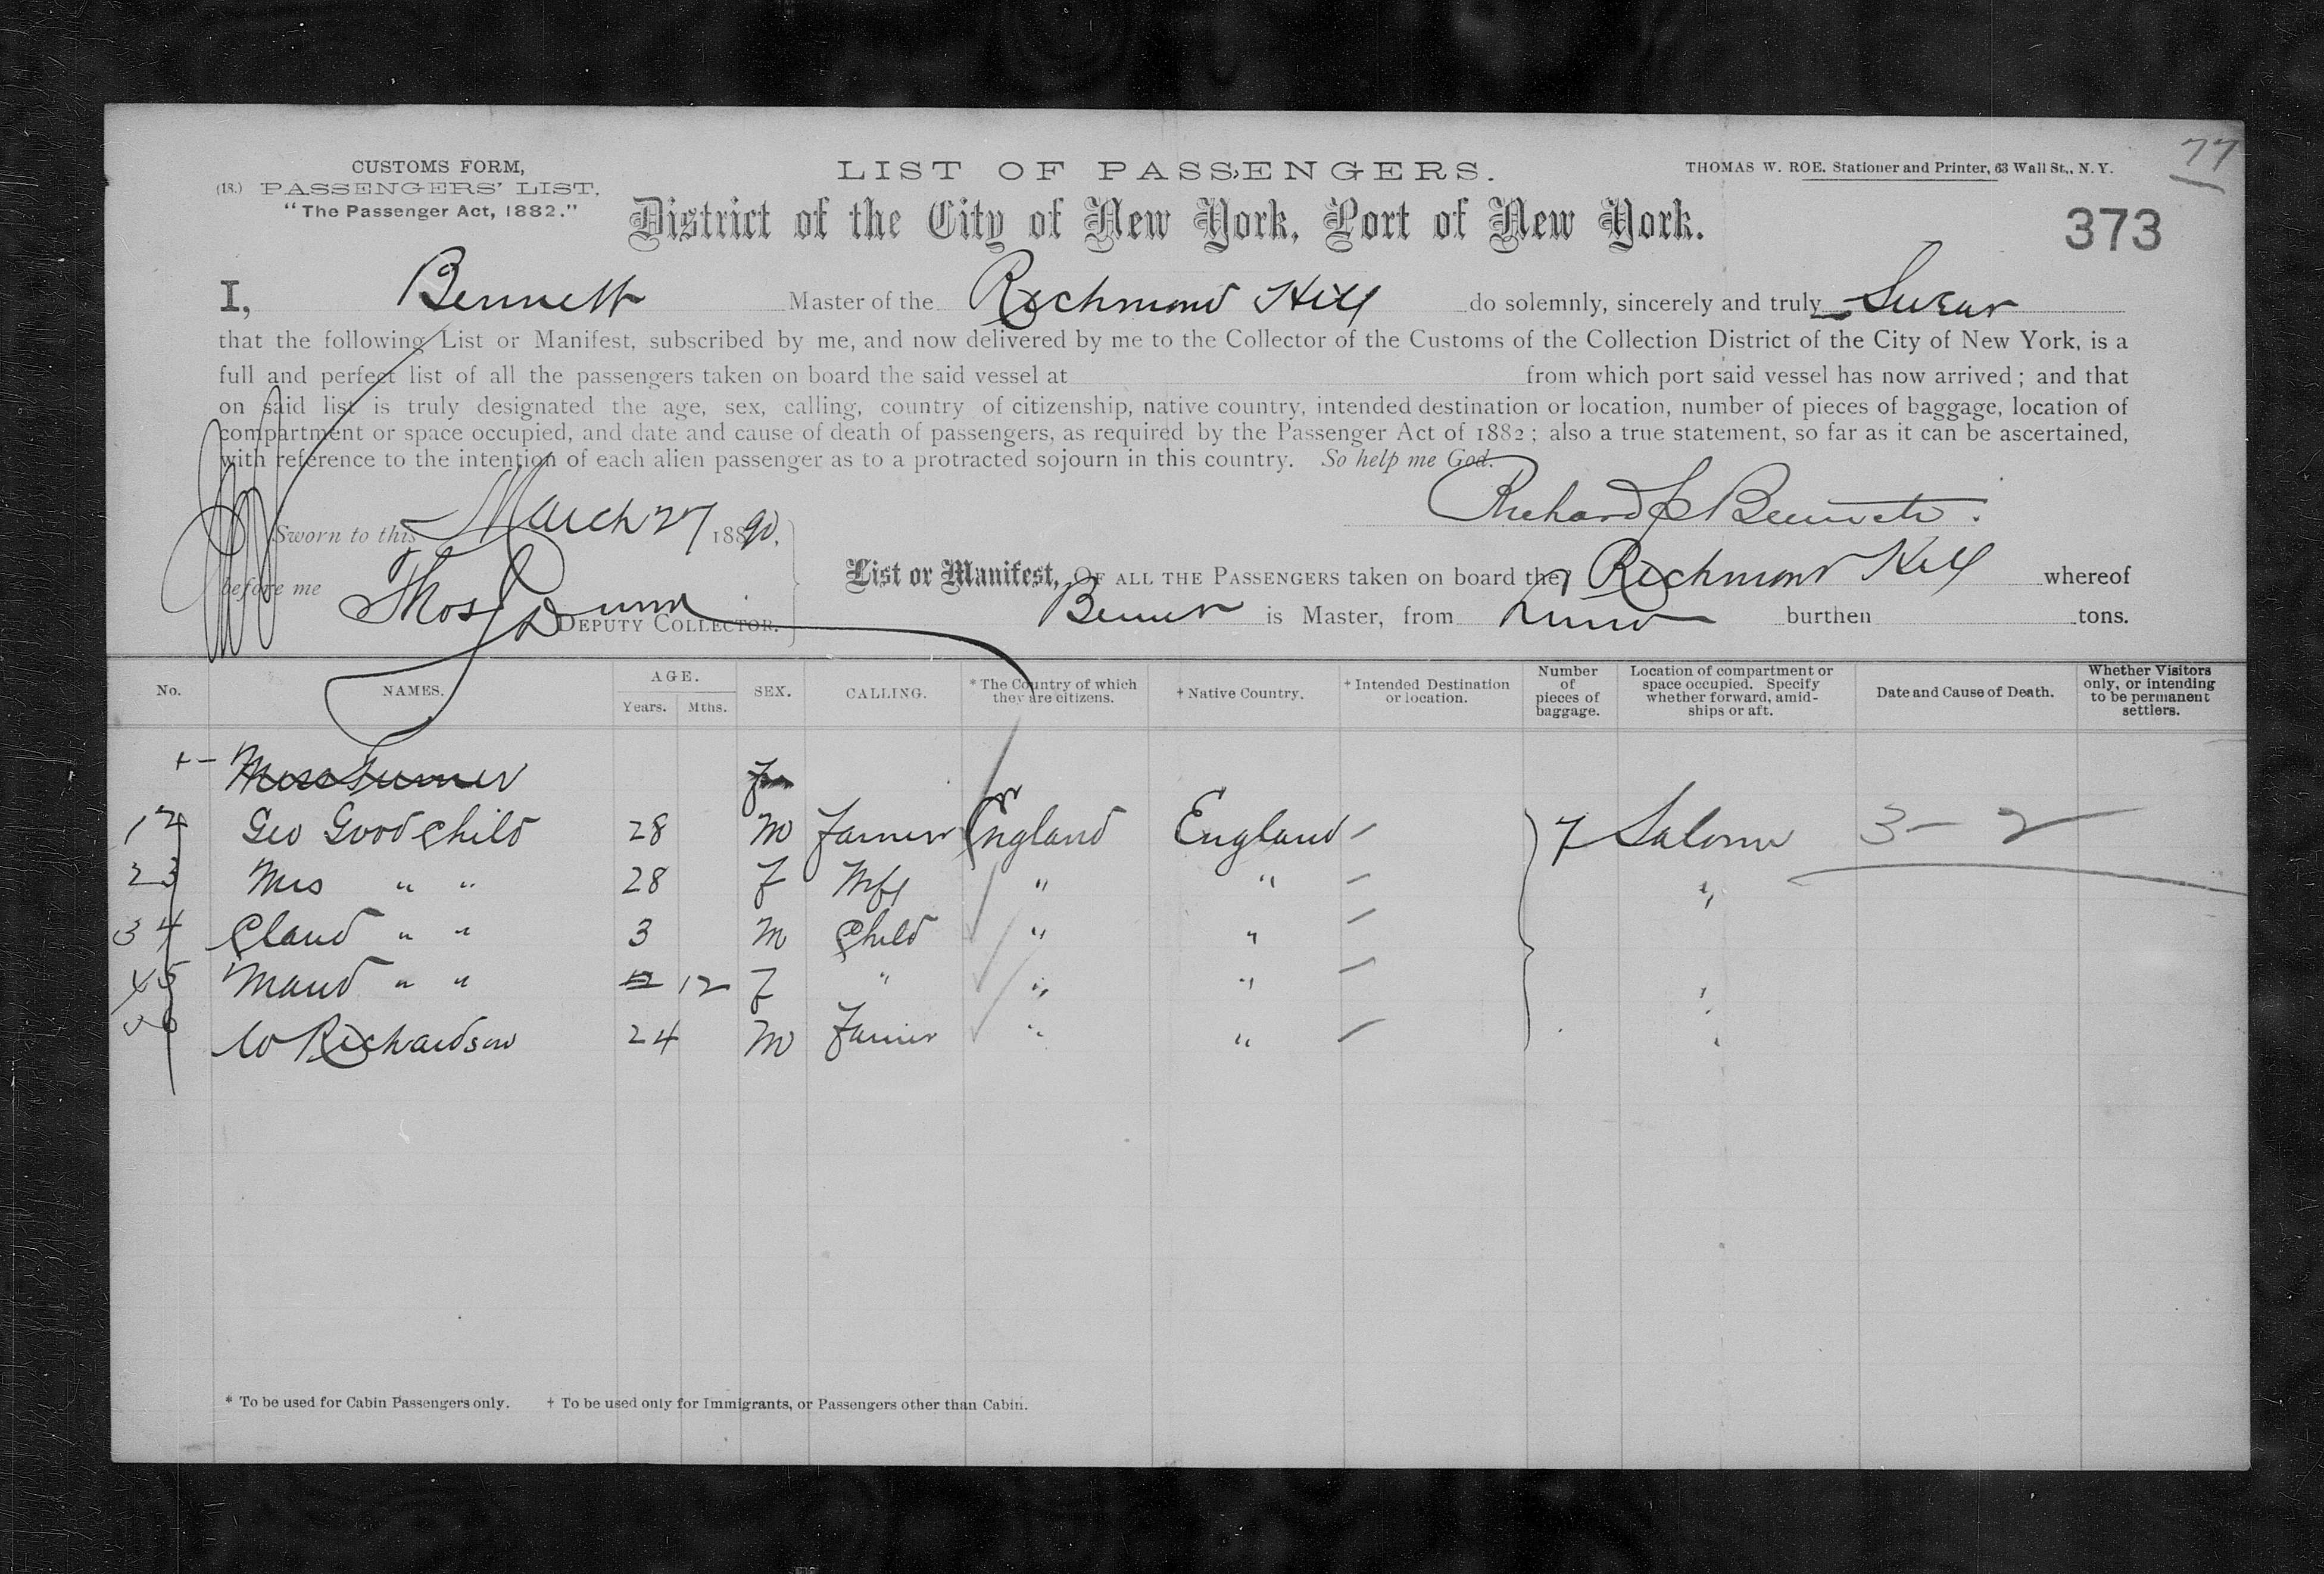 77
CUSTOMS FORM,
(18.) PASSENGERS' LIST,
"The Passenger Act, 1882."
LIST OF PASSENGERS.
THOMAS W. ROE. Stationer and Printer, 63 Wall St., N. Y.
District of the City of New York, Port of New York.
373
I, Bennett Master of the Richmond Hill do solemnly, sincerely and truly Swear
that the following List or Manifest, subscribed by me, and now delivered by me to the Collector of the Customs of the Collection District of the City of New York, is a
full and perfect list of all the passengers taken on board the said vessel at from which port said vessel has now arrived; and that
on said list is truly designated the age, sex, calling, country of citizenship, native country, intended destination or location, number of pieces of baggage, location of
compartment or space occupied, and date and cause of death of passengers, as required by the Passenger Act of 1882; also a true statement, so far as it can be ascertained,
with reference to the intention of each alien passenger as to a protracted sojourn in this country. So help me God.
Richard Bennett.
Sworn to this March 27 1890,
before me Thos Dunn
DEPUTY COLLECTOR.
List or Manifest, OF ALL THE PASSENGERS taken on board the Richmond Hill whereof
Bennett is Master, from burthen tons.
No. NAMES. AGE. Years. Mths. SEX. CALLING. * The Country of which they are citizens. † Native Country. † Intended Destination or location. Number of pieces of baggage. Location of compartment or space occupied. Specify whether forward, amidships or aft. Date and Cause of Death. Whether Visitors only, or intending to be permanent settlers.
Miss Turner F
1 2 Geo Goodchild 28 M Farmer England England 7 Saloon 3 - 2
2 3 Mrs " " 28 F Wife " " "
3 4 Claud " " 3 M Child " "
4 5 Maud " " 12 F " " " "
5 6 W Richardson 24 M Farmer " " "
* To be used for Cabin Passengers only. † To be used only for Immigrants, or Passengers other than Cabin.